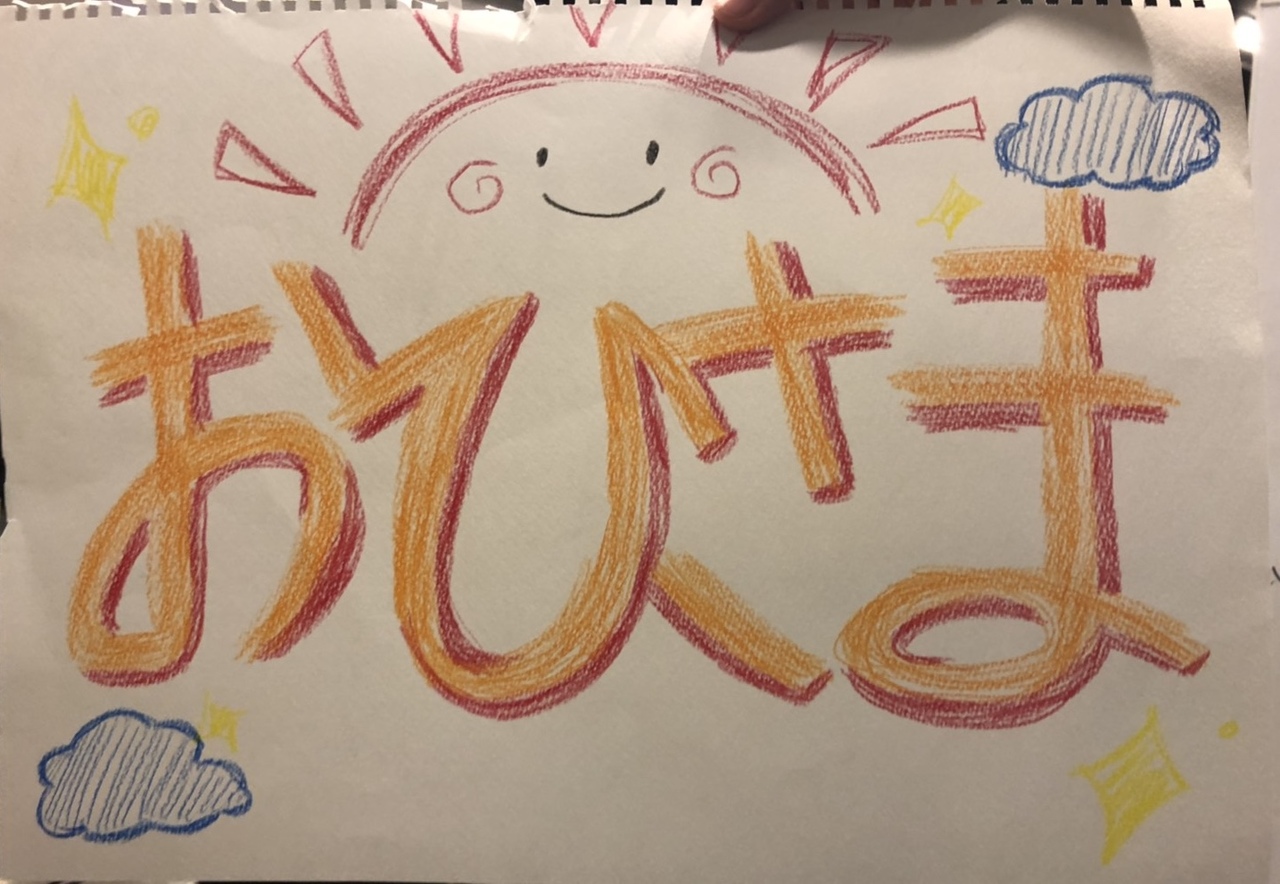 おひさま